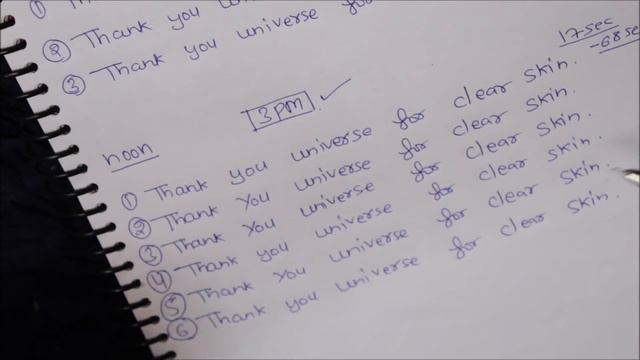 ① Th
② Thank you uni
③ Thank you universe for
17sec
-68se
3pm ✓
noon
① Thank you universe for clear skin.
② Thank you universe for clear skin.
③ Thank you universe for clear skin.
④ Thank you universe for clear skin.
⑤ Thank you universe for clear skin.
⑥ Thank you universe for clear skin.